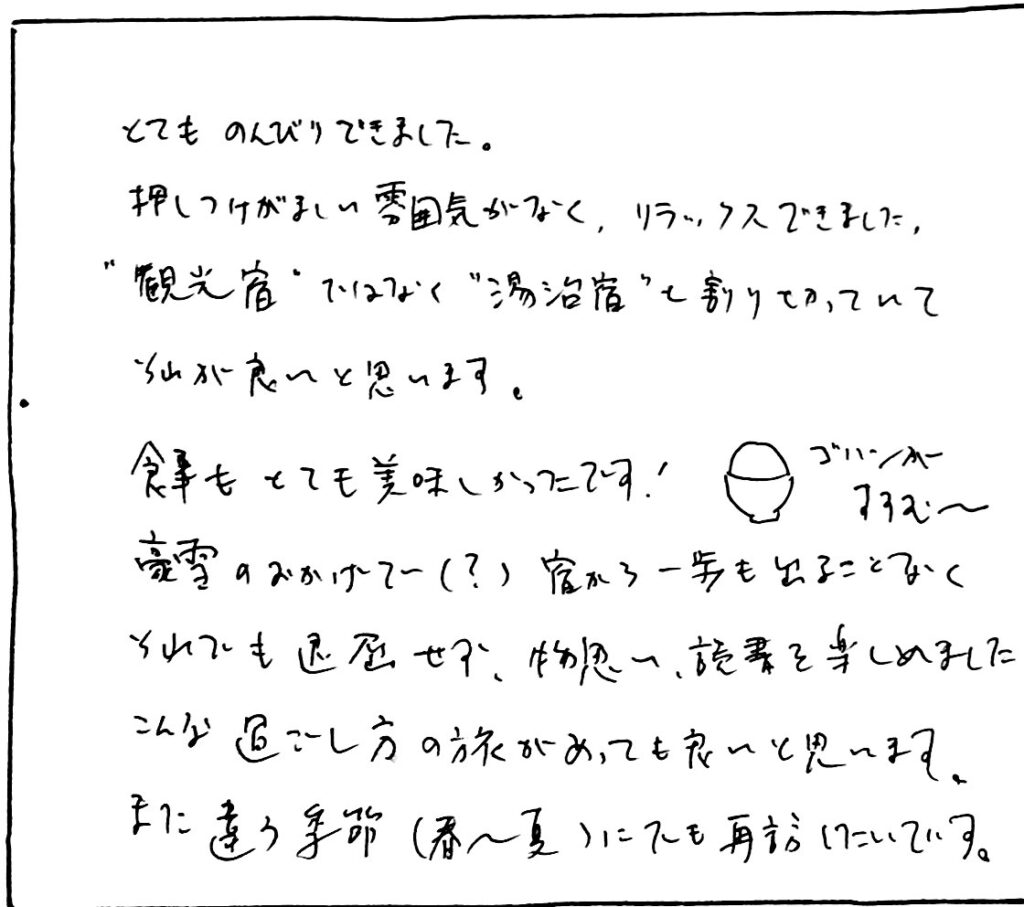 とても のんびりできました。
押しつけがましい雰囲気がなく、リラックスできました。
"観光宿"ではなく"湯治宿"と割りきっていて
それが良いと思います。
食事もとても美味しかったです!
ゴハンがー
すすむ〜
豪雪のおかげでー(?)宿から一歩も出ることなく
それでも退屈せず、物思い、読書を楽しめました
こんな過ごし方の旅があっても良いと思います。
また違う季節(春〜夏)にでも再訪したいです。